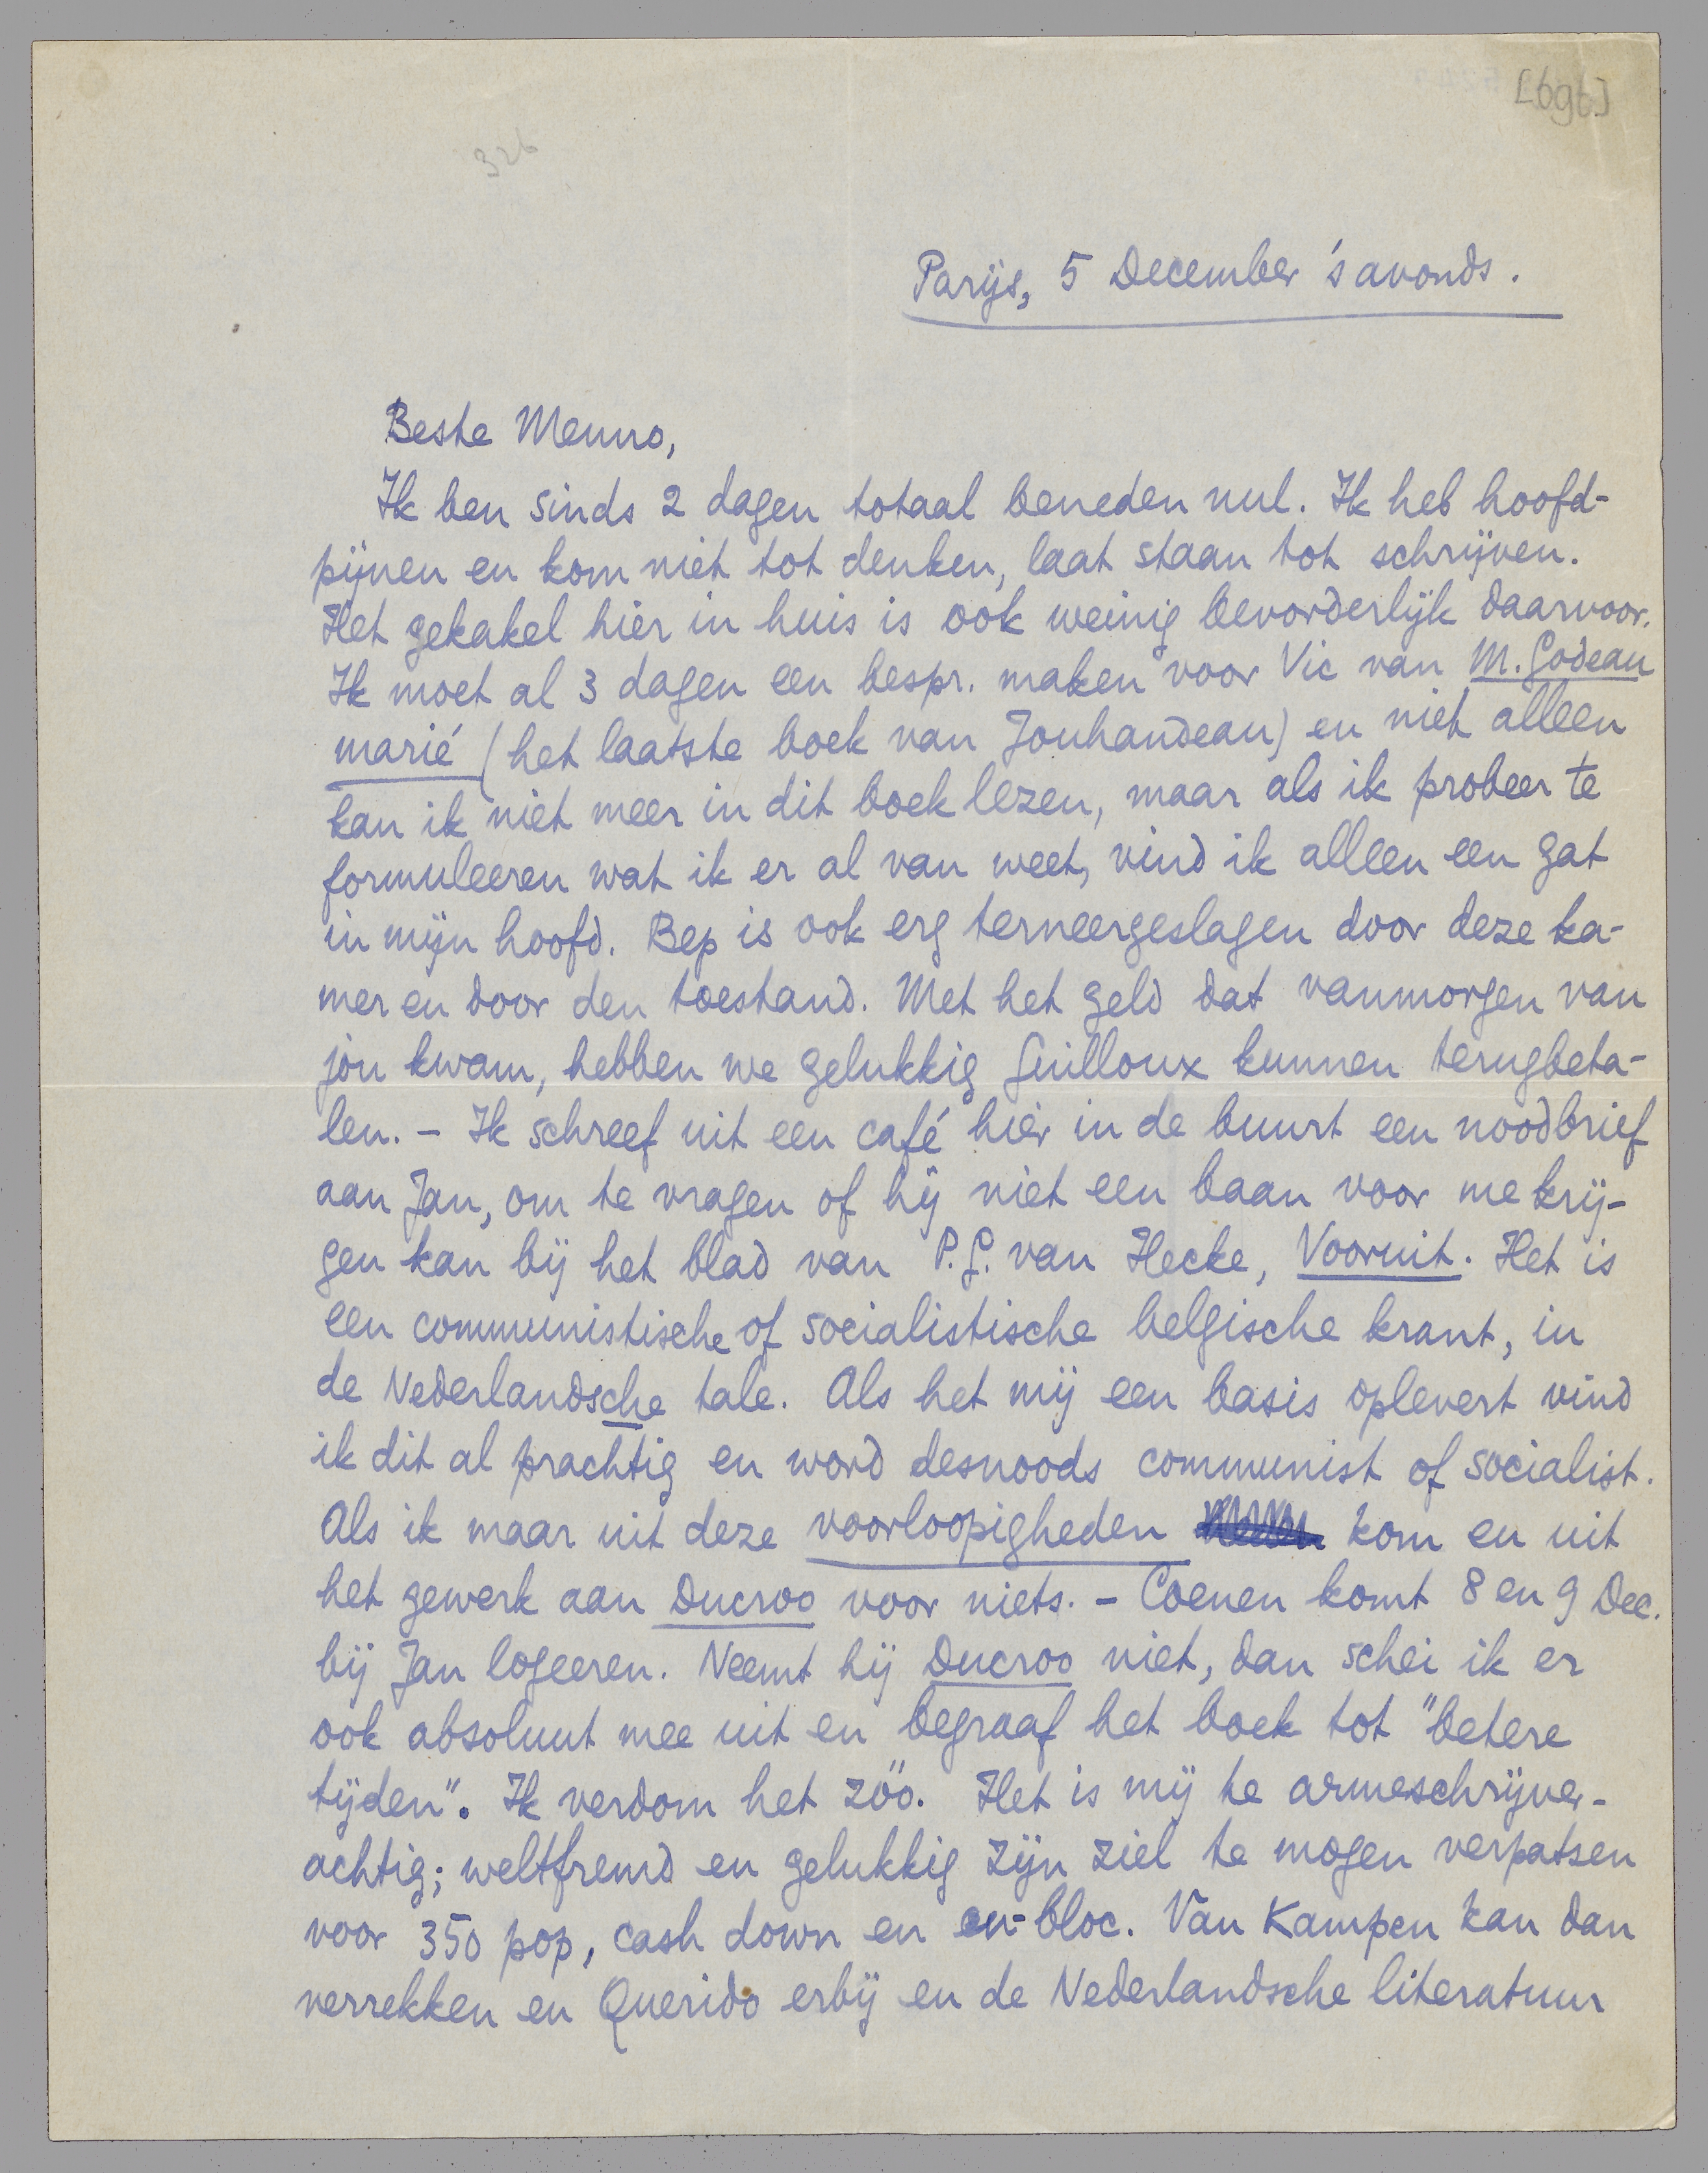 [696]
326
Parijs, 5 December 's avonds.
Beste Menno,
Ik ben sinds 2 dagen totaal beneden nul. Ik heb hoofd-
pijnen en kom niet tot denken, laat staan tot schrijven.
Het gekakel hier in huis is ook weinig bevorderlijk daarvoor.
Ik moet al 3 dagen een bespr. maken voor Vic van M. Godeau
marié (het laatste boek van Jouhandeau) en niet alleen
kan ik niet meer in dit boek lezen, maar als ik probeer te
formuleeren wat ik er al van weet, vind ik alleen een gat
in mijn hoofd. Bep is ook erg terneergeslagen door deze ka-
mer en door den toestand. Met het geld dat vanmorgen van
jou kwam, hebben we gelukkig Guilloux kunnen terugbeta-
len. - Ik schreef uit een café hier in de buurt een noodbrief
aan Jan, om te vragen of hij niet een baan voor me krij-
gen kan bij het blad van P.G. van Hecke, Vooruit. Het is
een communistische of socialistische belgische krant, in
de Nederlandsche tale. Als het mij een basis oplevert vind
ik dit al prachtig en word desnoods communist of socialist.
Als ik maar uit deze voorloopigheden kom en uit
het gewerk aan Ducroo voor niets. - Coenen komt 8 en 9 Dec.
bij Jan logeeren. Neemt hij Ducroo niet, dan schei ik er
ook absoluut mee uit en begraaf het boek tot "betere
tijden". Ik verdom het zóó. Het is mij te armeschrijver-
achtig; weltfremd en gelukkig zijn ziel te mogen verpatsen
voor 350 pop, cash down en en-bloc. Van Kampen kan dan
verrekken en Querido erbij en de Nederlandsche literatuur